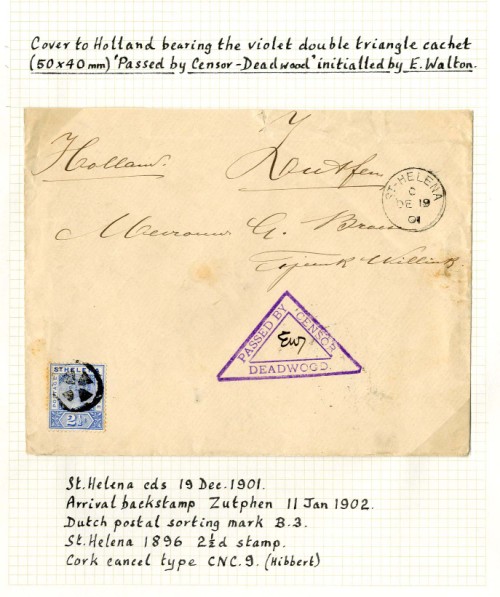 Cover to Holland bearing the violet double triangle cachet
(50x40mm) "Passed by Censor-Deadwood" initialled by E. Walton.
Holland. Zutfen
ST. HELENA
C
DE 19
01
Mevrouw G.
PASSED BY CENSOR
EW
DEADWOOD.
ST HELENA
POSTAGE
2½d
St. Helena cds 19 Dec. 1901.
Arrival backstamp Zutphen 11 Jan 1902.
Dutch postal sorting mark B.3.
St. Helena 1896 2½d stamp.
Cork cancel type CNC.9. (Hibbert)